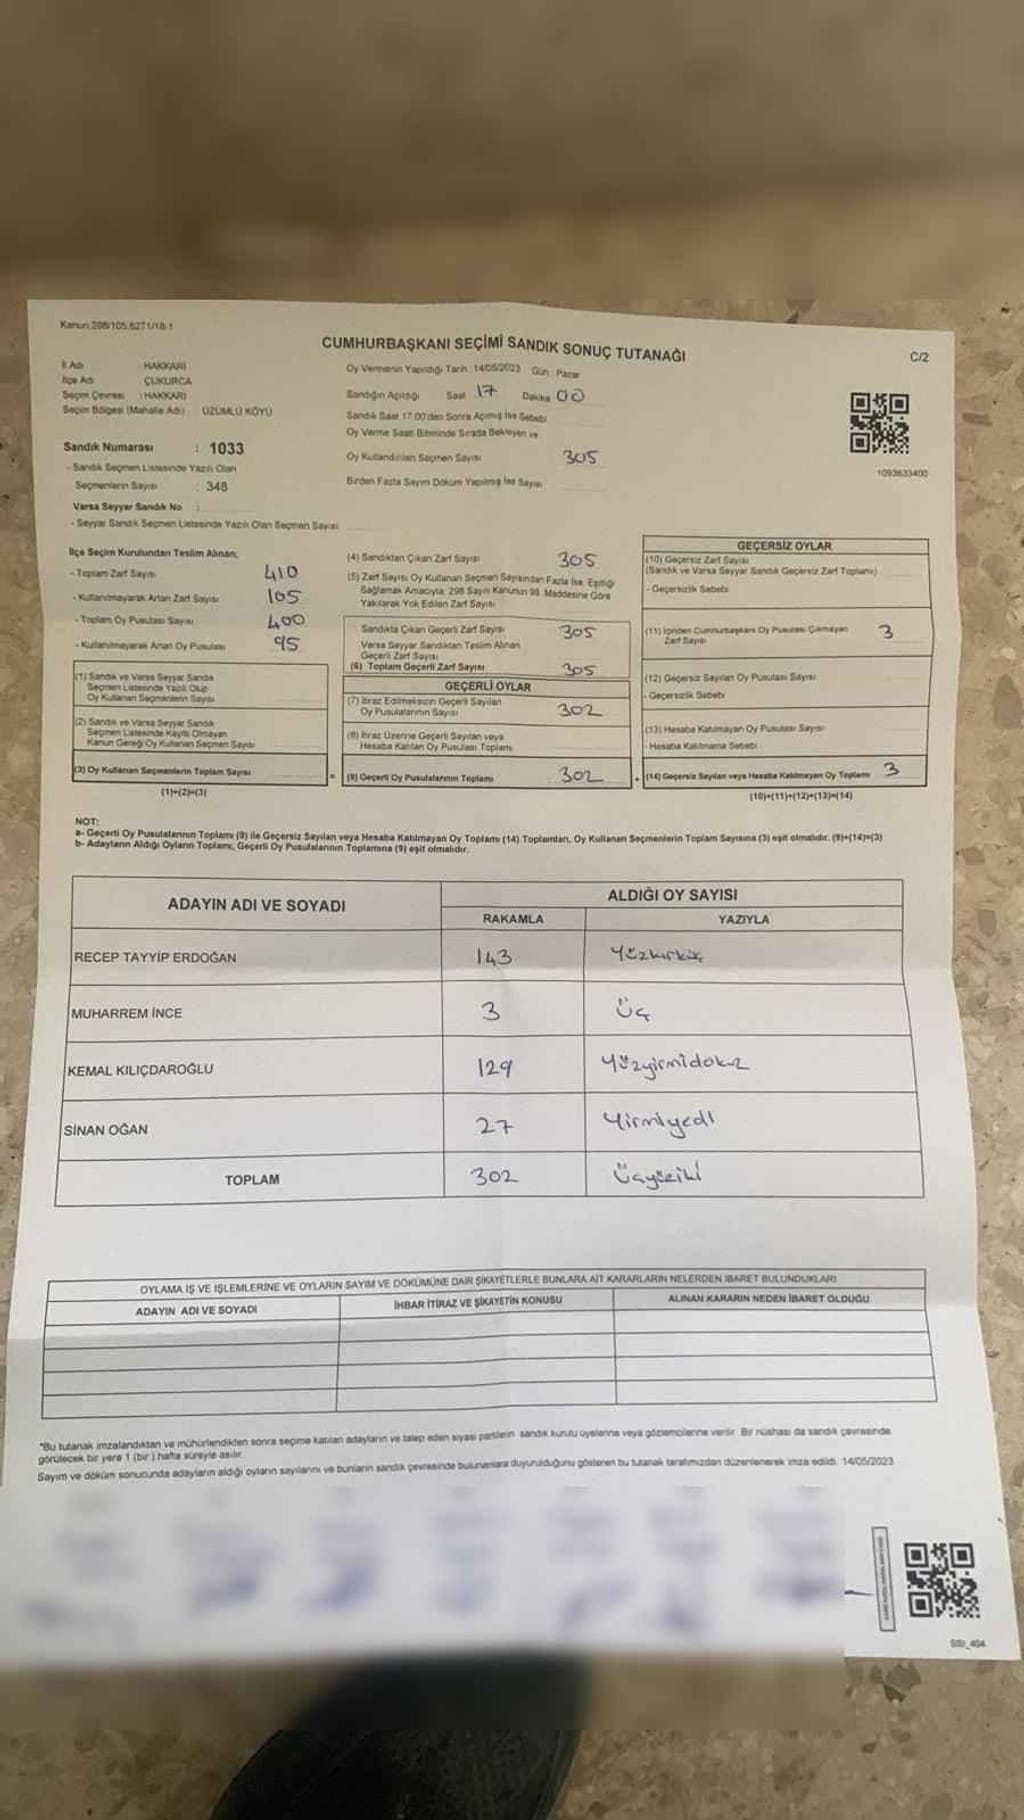 Kanun:298/105,6271/18-1
CUMHURBAŞKANI SEÇİMİ SANDIK SONUÇ TUTANAĞI
C/2
İl Adı : HAKKARİ
İlçe Adı : ÇUKURCA
Seçim Çevresi : HAKKARİ
Seçim Bölgesi (Mahalle Adı) : ÜZÜMLÜ KÖYÜ
Sandık Numarası : 1033
- Sandık Seçmen Listesinde Yazılı Olan
Seçmenlerin Sayısı : 348
Varsa Seyyar Sandık No :
- Seyyar Sandık Seçmen Listesinde Yazılı Olan Seçmen Sayısı
Oy Vermenin Yapıldığı Tarih : 14/05/2023 Gün : Pazar
Sandığın Açıldığı Saat 17 Dakika 00
Sandık Saat 17:00'den Sonra Açılmış İse Sebebi
Oy Verme Saati Bitiminde Sırada Bekleyen ve
Oy Kullandırılan Seçmen Sayısı 305
Birden Fazla Sayım Döküm Yapılmış İse Sayısı
1093633400
İlçe Seçim Kurulundan Teslim Alınan;
- Toplam Zarf Sayısı 410
- Kullanılmayarak Artan Zarf Sayısı 105
- Toplam Oy Pusulası Sayısı 400
- Kullanılmayarak Artan Oy Pusulası 95
(1) Sandık ve Varsa Seyyar Sandık
Seçmen Listesinde Yazılı Olup
Oy Kullanan Seçmenlerin Sayısı
(2) Sandık ve Varsa Seyyar Sandık
Seçmen Listesinde Kayıtlı Olmayan
Kanun Gereği Oy Kullanan Seçmen Sayısı
(3) Oy Kullanan Seçmenlerin Toplam Sayısı
(1)+(2)=(3)
(4) Sandıktan Çıkan Zarf Sayısı 305
(5) Zarf Sayısı Oy Kullanan Seçmen Sayısından Fazla İse, Eşitliği
Sağlamak Amacıyla, 298 Sayılı Kanunun 98. Maddesine Göre
Yakılarak Yok Edilen Zarf Sayısı
Sandıkta Çıkan Geçerli Zarf Sayısı 305
Varsa Seyyar Sandıktan Teslim Alınan
Geçerli Zarf Sayısı
(6) Toplam Geçerli Zarf Sayısı 305
GEÇERLİ OYLAR
(7) İtiraz Edilmeksizin Geçerli Sayılan
Oy Pusulalarının Sayısı 302
(8) İtiraz Üzerine Geçerli Sayılan veya
Hesaba Katılan Oy Pusulası Toplamı
= (9) Geçerli Oy Pusulalarının Toplamı 302
GEÇERSİZ OYLAR
(10) Geçersiz Zarf Sayısı
(Sandık ve Varsa Seyyar Sandık Geçersiz Zarf Toplamı)
- Geçersizlik Sebebi
(11) İçinden Cumhurbaşkanı Oy Pusulası Çıkmayan
Zarf Sayısı 3
(12) Geçersiz Sayılan Oy Pusulası Sayısı
- Geçersizlik Sebebi
(13) Hesaba Katılmayan Oy Pusulası Sayısı
- Hesaba Katılmama Sebebi
+ (14) Geçersiz Sayılan veya Hesaba Katılmayan Oy Toplamı 3
(10)+(11)+(12)+(13)=(14)
NOT:
a- Geçerli Oy Pusulalarının Toplamı (9) ile Geçersiz Sayılan veya Hesaba Katılmayan Oy Toplamı (14) Toplamları, Oy Kullanan Seçmenlerin Toplam Sayısına (3) eşit olmalıdır. (9)+(14)=(3)
b- Adayların Aldığı Oyların Toplamı, Geçerli Oy Pusulalarının Toplamına (9) eşit olmalıdır.
ADAYIN ADI VE SOYADI
ALDIĞI OY SAYISI
RAKAMLA YAZIYLA
RECEP TAYYİP ERDOĞAN 143 Yüzkırküç
MUHARREM İNCE 3 Üç
KEMAL KILIÇDAROĞLU 129 Yüzyirmidokuz
SİNAN OĞAN 27 Yirmiyedi
TOPLAM 302 Üçyüziki
OYLAMA İŞ VE İŞLEMLERİNE VE OYLARIN SAYIM VE DÖKÜMÜNE DAİR ŞİKAYETLERLE BUNLARA AİT KARARLARIN NELERDEN İBARET BULUNDUKLARI
ADAYIN ADI VE SOYADI İHBAR İTİRAZ VE ŞİKAYETİN KONUSU ALINAN KARARIN NEDEN İBARET OLDUĞU
*Bu tutanak imzalandıktan ve mühürlendikten sonra seçime katılan adayların ve talep eden siyasi partilerin sandık kurulu üyelerine veya gözlemcilerine verilir. Bir nüshası da sandık çevresinde
görülecek bir yere 1 (bir) hafta süreyle asılır.
Sayım ve döküm sonucunda adayların aldığı oyların sayılarını ve bunların sandık çevresinde bulunanlara duyurulduğunu gösteren bu tutanak tarafımızdan düzenlenerek imza edildi. 14/05/2023
SSI_404